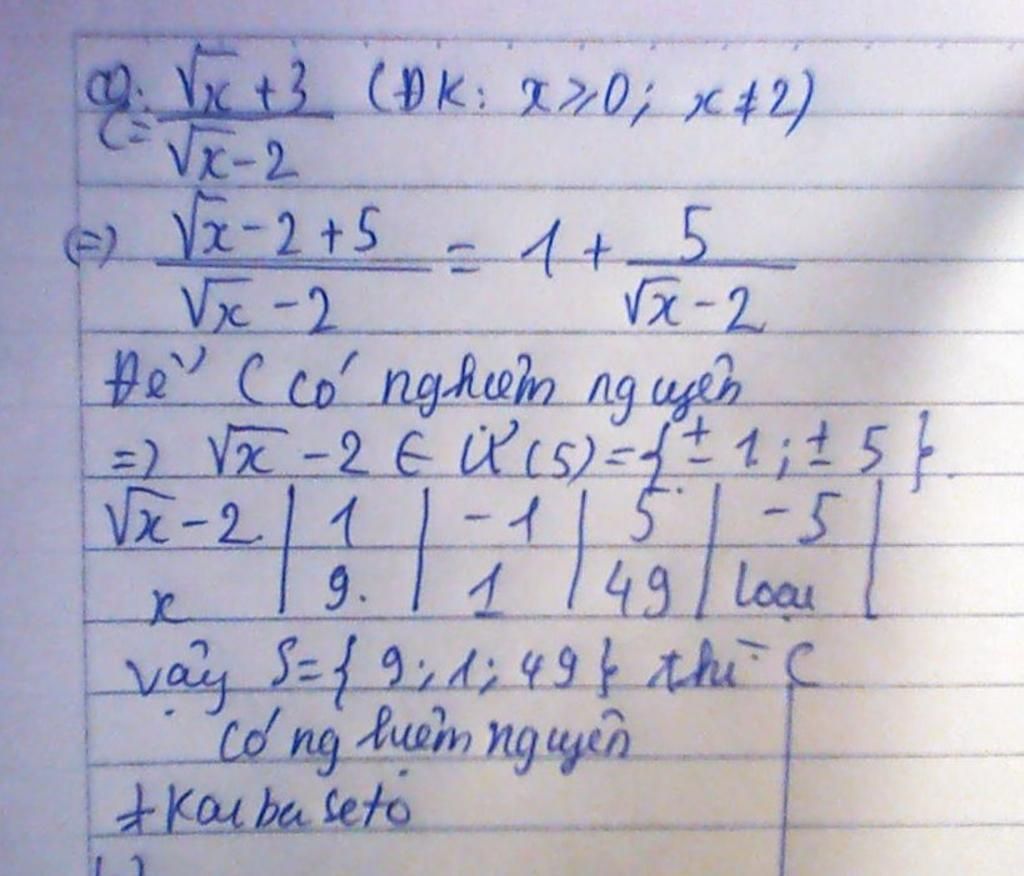 a). C = (√x + 3)/(√x - 2) (ĐK: x ≥ 0; x ≠ 2)
(=) (√x - 2 + 5)/(√x - 2) = 1 + 5/(√x - 2)
Để C có nghiệm nguyên
=) √x - 2 ∈ Ư(5) = {± 1; ± 5}.
√x - 2 | 1 | - 1 | 5 | - 5 |
x | 9. | 1 | 49 | loại |
vậy S = { 9; 1; 49 } thì C
có nghiệm nguyên
+ Kaiba seto